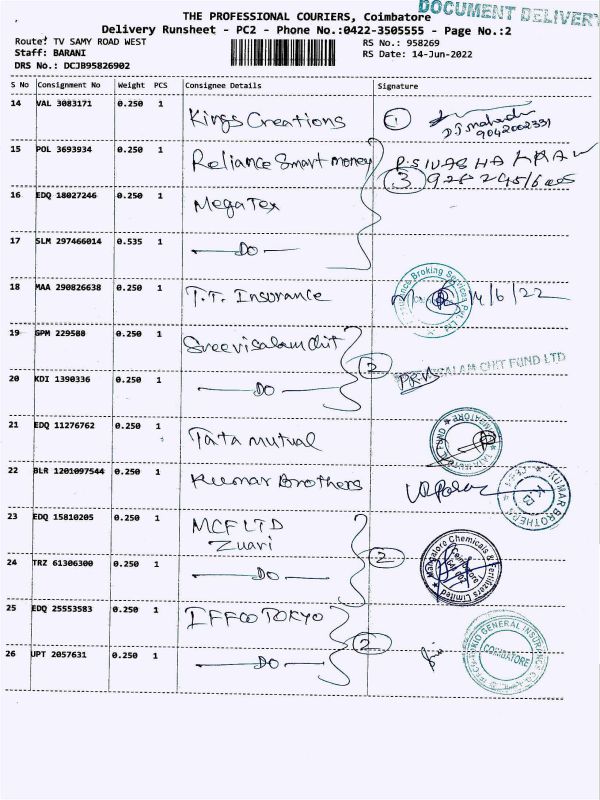 DOCUMENT DELIVERY
THE PROFESSIONAL COURIERS, Coimbatore
Delivery Runsheet - PC2 - Phone No.:0422-3505555 - Page No.:2
Route: TV SAMY ROAD WEST RS No.: 958269
Staff: BARANI RS Date: 14-Jun-2022
DRS No.: DCJB95826902
S No Consignment No Weight PCS Consignee Details Signature
14 VAL 3083171 0.250 1 Kings Creations 1
9042002331
15 POL 3693934 0.250 1 Reliance Smart money
3
16 EDQ 18027246 0.250 1 Mega Tex
17 SLM 297466014 0.535 1 DO
18 MAA 290826638 0.250 1 T.T. Insurance 14/6/22
19 GPM 229588 0.250 1 Sreevisalam chit 2
CHIT FUND LTD
20 KDI 1390336 0.250 1 DO
21 EDQ 11276762 0.250 1 Tata mutual
22 BLR 1201097544 0.250 1 Kumar Brothers
KUMAR BROTHERS
K.B
23 EDQ 15810205 0.250 1 MCF LTD
Zuari 2
Mangalore Chemicals & Fertilizers Limited
24 TRZ 61306300 0.250 1 DO
25 EDQ 25553583 0.250 1 IFFCO TOKYO 2
GENERAL INSURANCE
COIMBATORE
26 UPT 2057631 0.250 1 DO